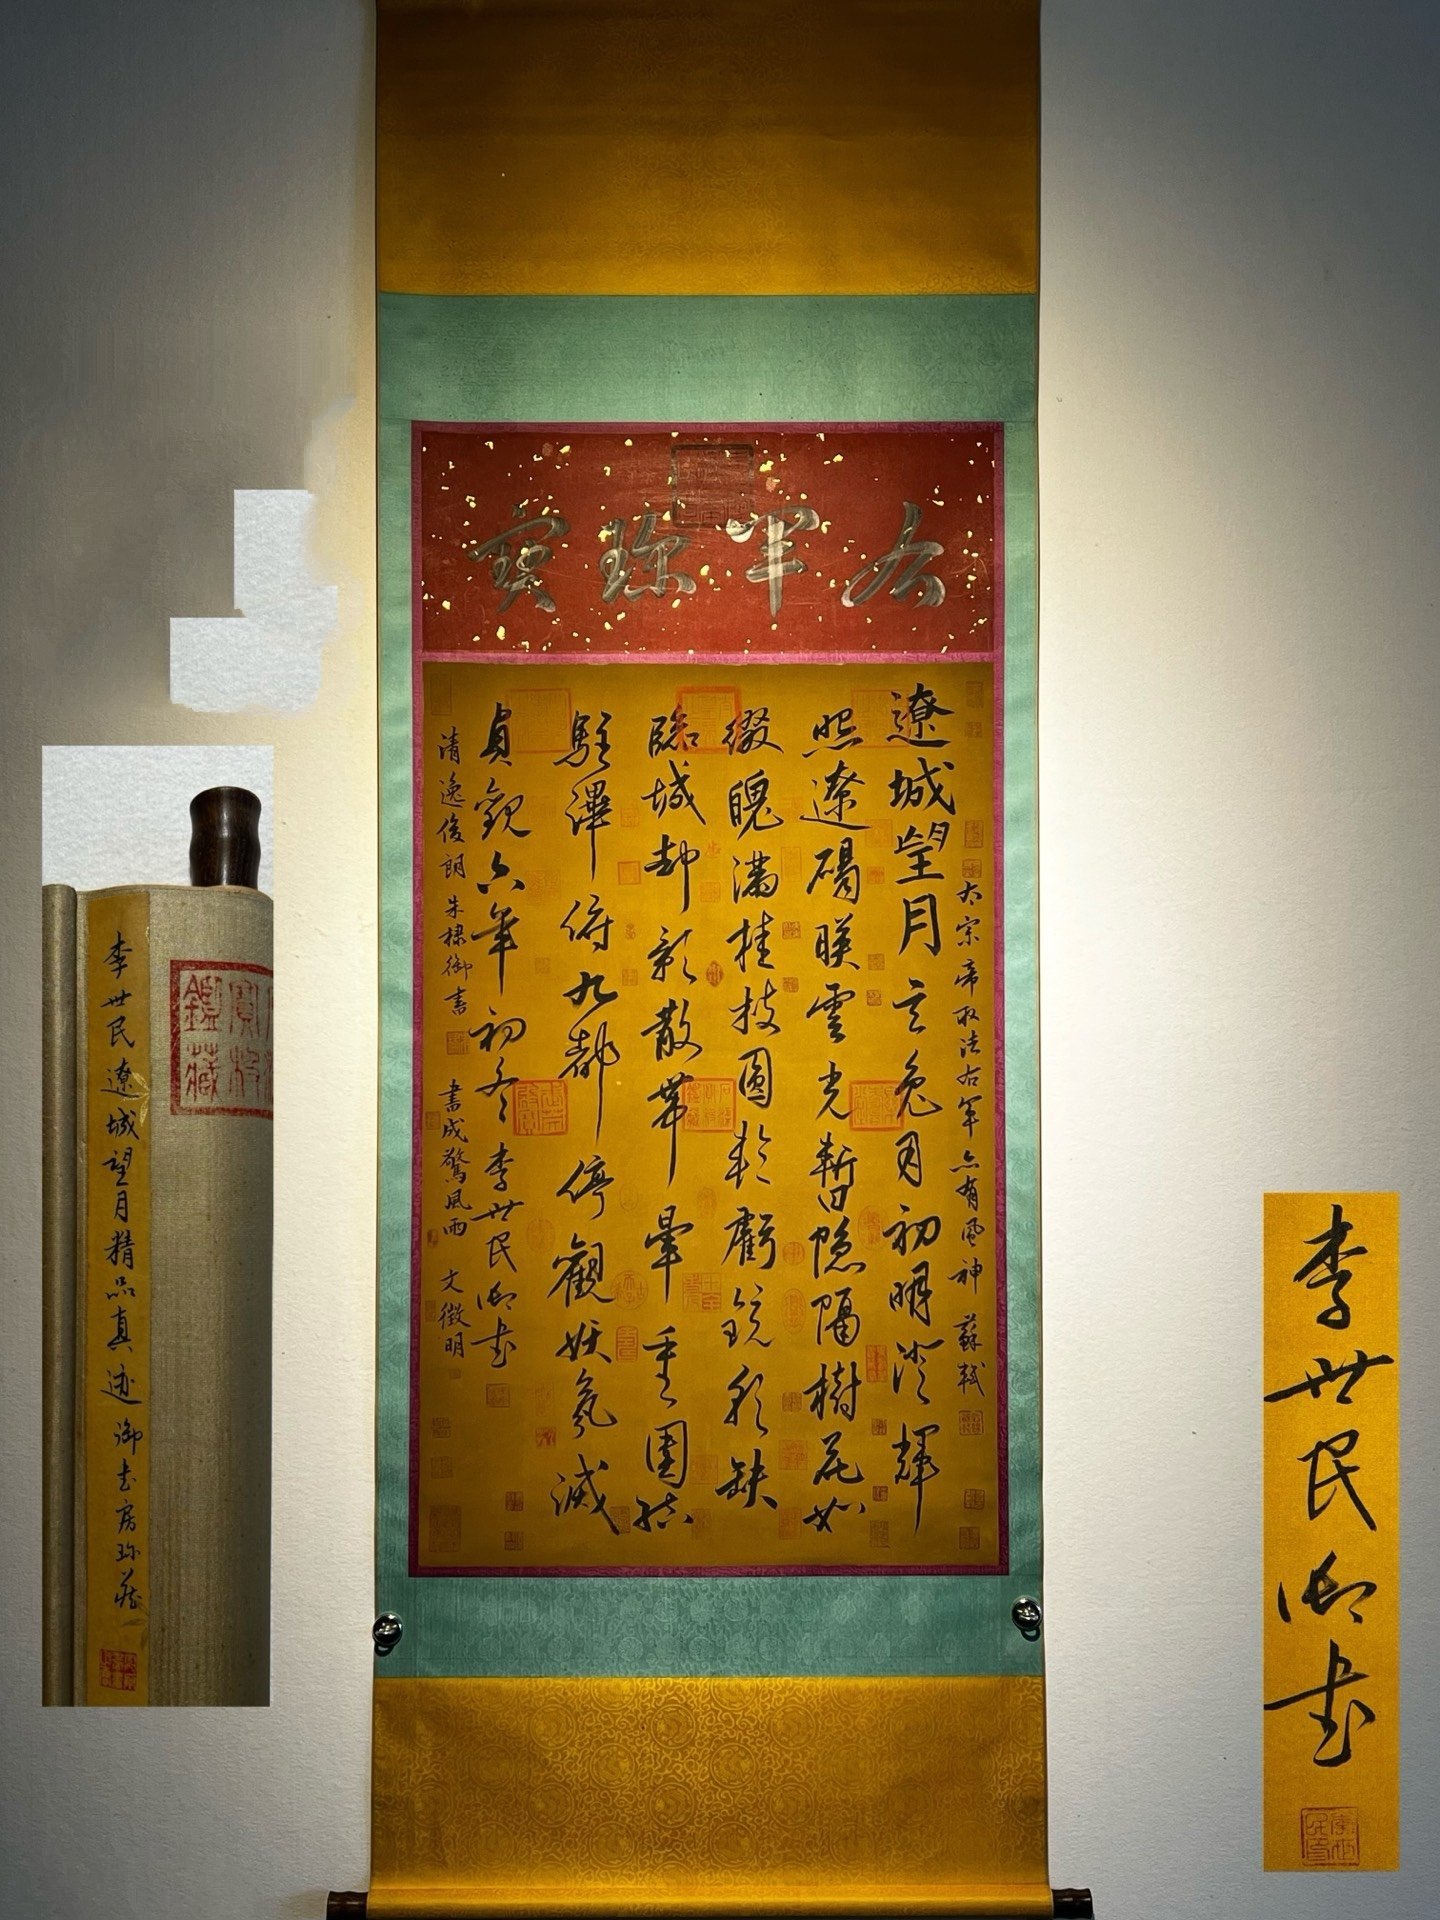 右軍珍寶
太宗帝取法右軍亦有風神 蘇軾
遼城望月 玄兔月初明澄輝
照遼碣映雲光暫隱隔樹花如
綴魄滿桂枝圓輪虧鏡彩缺
臨城却影散帶暈重圍結
駐蹕俯九都停觀妖氛滅
貞觀六年初冬 李世民御書
清逸俊朗 朱棣御書 書成驚風雨 文徵明
李世民遼城望月精品真迹御書房珍藏
鑑藏
李世民御書